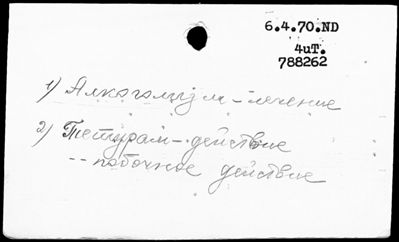 6.4.70.ND
4uT.
788262
1) Алкоголизм – лечение
2) Тетурам – действие
-- побочное действие